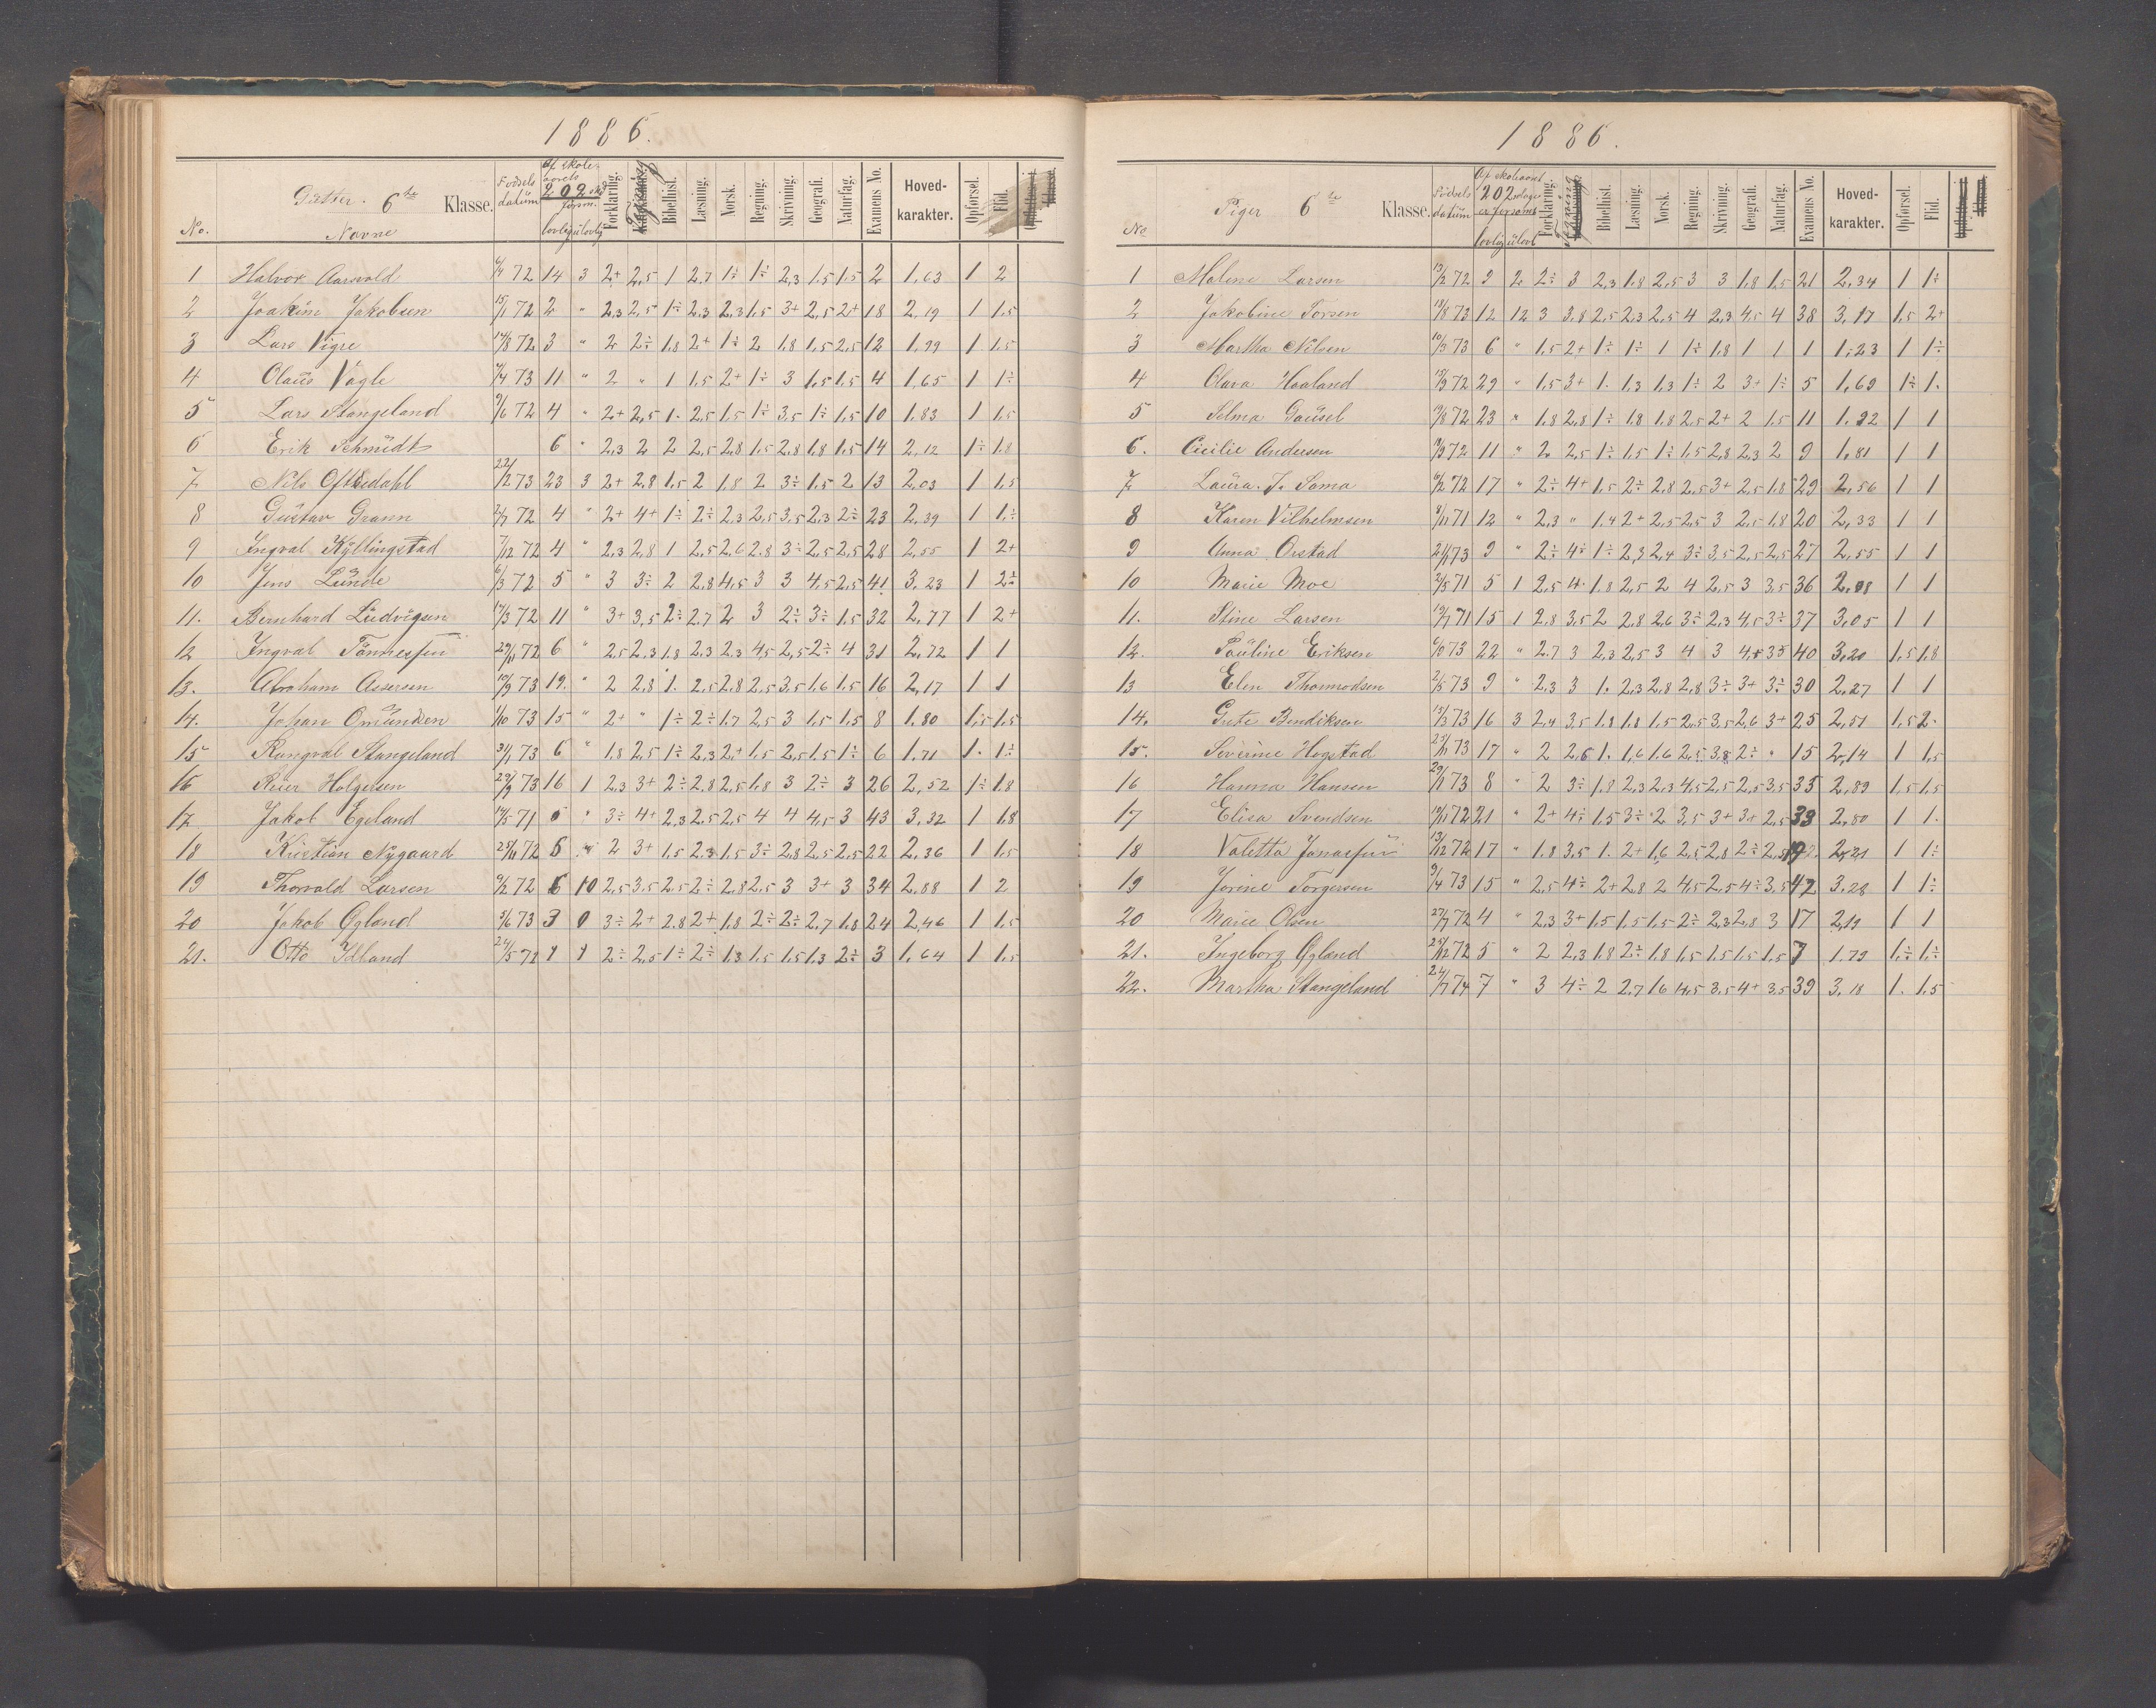 1886.
Gutter. 6te Klasse.
No. Navne Fødsels datum Af skole-aarets 202 forsømt lovlig ulovlig Forklaring. Tegning Bibelhist. Læsning. Norsk. Regning. Skrivning. Geografi. Naturfag. Examens No. Hoved-karakter. Opførsel. Flid.
1 Halvor Aarsvold 72 14 3 2+ 2,5 1 2,7 1÷ 1÷ 2,3 1,5 1,5 2 1,63 1 2
2 Joakim Jakobsen 15/1 72 2 " 2,3 2,5 1÷ 2,3 2,3 1,5 3+ 2,5 2+ 18 2,19 1 1,5
3 Lars Vigre 14/8 72 3 " 2 2÷ 1,8 2+ 1÷ 2 1,8 1,5 2,5 12 1,99 1 1,5
4 Olaus Vagle 73 11 " 2 " 1 1,5 2+ 1÷ 3 1,5 1,5 4 1,65 1 1÷
5 Lars Stangeland 9/6 72 4 " 2+ 2,5 1. 2,5 1,5 1÷ 3,5 1÷ 1,5 10 1,83 1 1,5
6 Erik Schmidt 6 " 2,3 2 2 2,5 2,8 1,5 2,8 1,8 1,5 14 2,12 1÷ 1,8
7 Nils Oftedahl 22/12 73 23 3 2+ 2,8 1,5 2 1,8 2 3÷ 1,5 2 13 2,03 1 1,5
8 Gustav Grann 2/7 72 4 " 2+ 4+ 1÷ 2÷ 2,3 2,5 3,5 2,3 2÷ 23 2,39 1 1÷
9 Ingval Kyllingstad 7/12 72 4 " 2,3 2,8 1 2,5 2,6 2,8 3÷ 2,5 2,5 28 2,55 1 2+
10 Jens Lunde 6/3 72 5 " 3 3÷ 2 2,8 4,5 3 3 4,5 2,5 41 3,23 1 2÷
11. Bernhard Ludvigsen 17/3 72 11 " 3+ 3,5 2÷ 2,7 2 3 2÷ 3÷ 1,5 32 2,77 1 2+
12 Ingval Tønnessen 29/11 72 6 " 2,5 2,3 1,8 2,3 2,3 4,5 2,5 2÷ 4 31 2,72 1 1
13. Abraham Assersen 10/9 73 19. " 2 2,8 1. 2,5 2,8 2,5 3,5 1,6 1,5 16 2,17 1 1
14. Johan Omundsen 1/10 73 15 " 2+ " 1÷ 2÷ 1,7 2,5 3 1,5 1,5 8 1,80 1,5 1,5
15 Rangval Stangeland 31/1 73 6 " 1,8 2,5 1÷ 2,3 2+ 1,5 2,5 1,5 1÷ 6 1,71 1. 1÷
16 Reier Holgersen 23/9 73 16 1 2,3 3+ 2÷ 2,8 2,5 1,8 3 2÷ 3 26 2,52 1÷ 1,8
17 Jakob Egeland 14/5 71 6 " 3÷ 4+ 2,3 2,5 2,5 4 4 4,5 3 43 3,32 1 1,8
18 Kristian Nygaard 25/11 72 6 " 2 3+ 1,5 2,3 1,5 3÷ 2,8 2,5 2,5 22 2,36 1 1,5
19 Thorvald Larsen 9/2 72 6 10 2,5 3,5 2,5 2÷ 2,8 2,5 3 3+ 3 34 2,88 1 2
20 Jakob Ogland 3/6 73 3 0 3÷ 2+ 2,8 2+ 1,8 2÷ 2÷ 2,7 1,8 24 2,46 1 1,5
21. Otto Idland 24/5 72 2÷ 2,5 1÷ 2÷ 1,3 1,5 1,5 1,3 2÷ 3 1,64 1 1,5
1886.
Piger 6te Klasse.
No Fødsels datum Af skoleaaret 202 dage er forsømt lovlig ulovl Forklaring. Tegning Bibelhist. Læsning. Norsk. Regning. Skrivning. Geografi. Naturfag. Examens No. Hoved-karakter. Opførsel. Flid.
1 Malene Larsen 13/2 72 9 2 2÷ 3 2,3 1,8 2,5 3 3 1,8 1,5 21 2,34 1 1÷
2 Jakobine Torsen 13/8 73 12 12 3 3,8 2,5 2,3 2,5 4 2,3 4,5 4 38 3,17 1,5 2+
3 Martha Nilsen 10/3 73 6 " 1,5 2+ 1÷ 1÷ 1 1÷ 1,8 1 1 1 1,23 1 1÷
4 Olava Haaland 72 29 " 1,5 3+ 1. 1,3 1,3 1÷ 2 3+ 1÷ 5 1,69 1÷ 1.
5 Selma Gausel 72 23 " 1,8 2,8 1÷ 1,8 1,8 2,5 2+ 2 1,5 11 1,92 1 1
6. Cicilie Andersen 72 11 " 2 2,5 1÷ 1,5 1÷ 1,5 2,8 2,3 2 9 1,81 1 1
7 Laura. J. Soma 72 17 " 2÷ 4+ 1,5 2÷ 2,8 2,5 3+ 2,5 1,8 29 2,56 1 1
8 Karen Vilhelmsen 71 12 " 2,3 " 1,4 2+ 2,5 2,5 3 2,5 1,8 20 2,33 1 1
9 Anna Orstad 73 9 " 2÷ 4÷ 1÷ 2,3 2,4 3÷ 3,5 2,5 2,5 27 2,55 1 1
10 Marie Moe 2/5 71 5 1 2,5 4. 1,8 2,5 2 4 2,5 3 3,5 36 2,98 1 1
11. Stine Larsen 71 15 1 2,8 3,5 2 2,8 2,6 3÷ 2,3 4,5 3÷ 37 3,05 1 1
12. Pauline Eriksen 6/10 73 22 " 2,7 3 2,3 2,5 3 4 3 4+ 3,5 40 3,20 1,5 1,8
13 Elen Thomrodsen 2/5 73 9 " 2,3 3 1. 2,3 2,8 2,8 3÷ 3+ 3÷ 30 2,27 1 1
14. Grete Bendiksen 13/3 73 16 3 2,4 3,5 1,8 1,8 1,5 2,5 3,5 2,6 3+ 25 2,51 1,5 2.
15. Severine Hogstad 73 17 " 2 2,6 1. 1,6 1,6 2,5 3,8 2÷ " 15 2,14 1 1,5
16 Hanna Hansen 73 8 " 2 3÷ 1,8 2,3 2,3 4,5 2,5 2,5 3,5 35 2,89 1,5 1,5
17 Elisa Svendsen 72 21 " 2+ 4÷ 1,5 3÷ 2 3,5 3+ 3+ 2,5 33 2,80 1 1.
18 Valetta Jonassen 13/12 72 17 " 1,8 3,5 1. 2+ 1,6 2,5 2,8 2÷ 2,5 19 2,21 1 1÷
19 Jorine Torgersen 9/4 73 15 " 2,5 4÷ 2+ 2,8 2 4,5 2,5 4÷ 3,5 42 3,28 1 1÷
20 Marie Olsen 27/7 72 4 " 2,3 3+ 1,5 1,5 1,5 2÷ 2,3 2,8 3 17 2,19 1 1
21. Ingeborg Ogland 25/12 72 5 " 2 2,3 1,8 2÷ 1,8 1,5 1,5 1,5 1,5 7 1,79 1÷ 1÷
22. Martha Stangeland 24/7 74 7 " 3 4÷ 2 2,7 1,6 4,5 3,5 4+ 3,5 39 3,18 1. 1,5